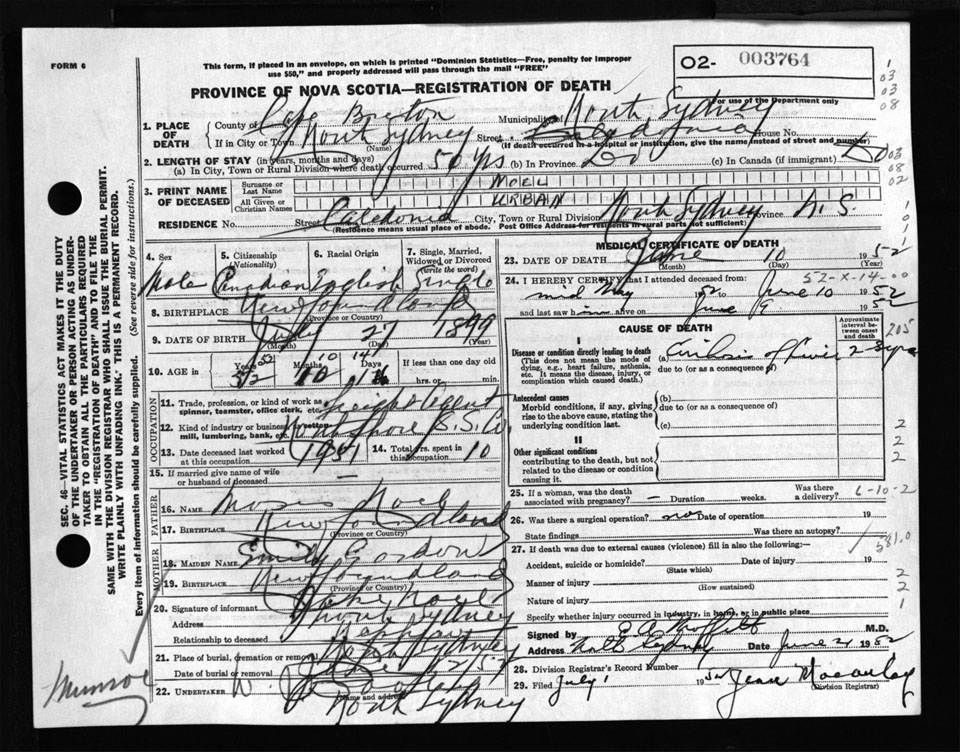 FORM 6
This form, if placed in an envelope, on which is printed "Dominion Statistics—Free, penalty for improper
use $50," and properly addressed will pass through the mail "FREE"
PROVINCE OF NOVA SCOTIA—REGISTRATION OF DEATH
02- 003764
For use of the Department only
1
03
03
08
03
08
02
1. PLACE OF DEATH
County of Cape Breton Municipality North Sydney
If in City or Town North Sydney Street Caledonia House No.
(Name) (If death occurred in a hospital or institution, give name instead of street and number)
2. LENGTH OF STAY (in years, months and days)
(a) In City, Town or Rural Division where death occurred 50 yrs (b) In Province Do (c) In Canada (if immigrant) Do
3. PRINT NAME OF DECEASED
Surname or Last Name NOEL
All Given or Christian Names URBAN
RESIDENCE No. Street Caledonia City, Town or Rural Division North Sydney Province N. S.
(Residence means place of abode. Post Office Address for residents in rural parts not sufficient)
4. Sex
5. Citizenship (Nationality)
6. Racial Origin
7. Single, Married, Widowed or Divorced (write the word)
Male Canadian English Single
8. BIRTHPLACE Newfoundland
(Province or Country)
9. DATE OF BIRTH July 27 1899
(Month) (Day) (Year)
10. AGE in Years 52 Months 10 Days 14 If less than one day old
hrs. or min.
OCCUPATION
11. Trade, profession, or kind of work as spinner, teamster, office clerk, etc. Freight Agent
12. Kind of industry or business, as cotton-mill, lumbering, bank, etc.
13. Date deceased last worked at this occupation 1951 14. Total yrs. spent in this occupation 10
15. If married give name of wife or husband of deceased
FATHER
16. NAME Noel
17. BIRTHPLACE Newfoundland
(Province or Country)
MOTHER
18. MAIDEN NAME Emily Gordon
19. BIRTHPLACE Newfoundland
(Province or Country)
20. Signature of informant Noel
Address North Sydney
Relationship to deceased
21. Place of burial, cremation or removal North Sydney
Date of burial or removal
22. UNDERTAKER W.
(Name and address)
North Sydney
MEDICAL CERTIFICATE OF DEATH
23. DATE OF DEATH June 10 1952
(Month) (Day) (Year)
52-X-14-00
24. I HEREBY CERTIFY that I attended deceased from
mid May 1952 to June 10 1952
and last saw him alive on June 9 1952
CAUSE OF DEATH
Approximate interval between onset and death
205
I
Disease or condition directly leading to death (a) Cirrhosis of Liver 2-3 yrs
(This does not mean the mode of dying, e.g., heart failure, asthenia, etc. It means the disease, injury, or complication which caused death.)
due to (or as a consequence of)
Antecedent causes
Morbid conditions, if any, giving rise to the above cause, stating the underlying condition last.
(b)
due to (or as a consequence of)
(c)
II
Other significant conditions
contributing to the death, but not related to the disease or condition causing it.
2
2
2
25. If a woman, was the death associated with pregnancy? — Duration weeks. Was there a delivery?
6-10-2
26. Was there a surgical operation? no Date of operation 19
State findings Was there an autopsy?
581.0
27. If death was due to external causes (violence) fill in also the following:—
Accident, suicide or homicide? Date of injury 19
(State which)
Manner of injury
(How sustained)
Nature of injury
Specify whether injury occurred in industry, in home, or in public place
2
2
1
Signed by M.D.
Address North Sydney Date June 1952
28. Division Registrar's Record Number
29. Filed July 1 1952 Jean Macaulay
(Division Registrar)
SEC. 46—VITAL STATISTICS ACT MAKES IT THE DUTY
OF THE UNDERTAKER OR PERSON ACTING AS UNDERTAKER
TO OBTAIN ALL THE PARTICULARS REQUIRED
IN THE "REGISTRATION OF DEATH" AND TO FILE THE
SAME WITH THE DIVISION REGISTRAR WHO SHALL ISSUE THE BURIAL PERMIT.
WRITE PLAINLY WITH UNFADING INK. THIS IS A PERMANENT RECORD.
Every item of information should be carefully supplied. (See reverse side for instructions.)
Munroe